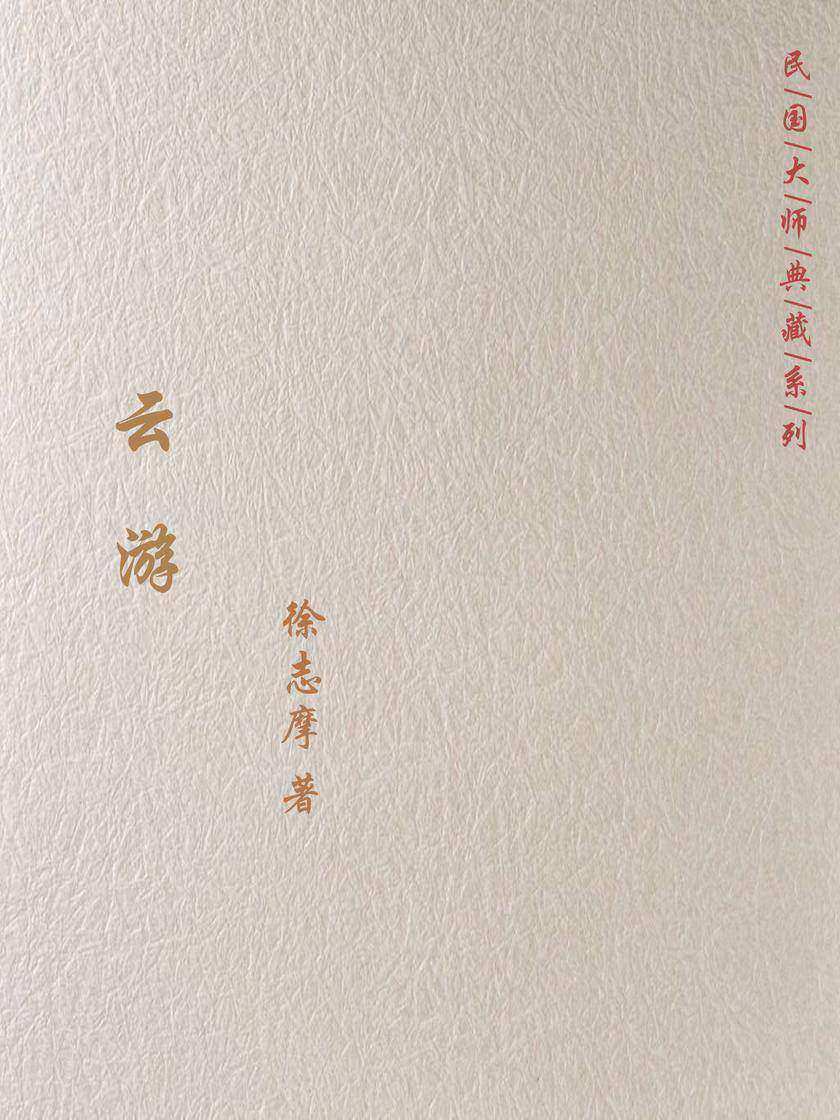 民/国/大/师/典/藏/系/列
云游
徐志摩 著